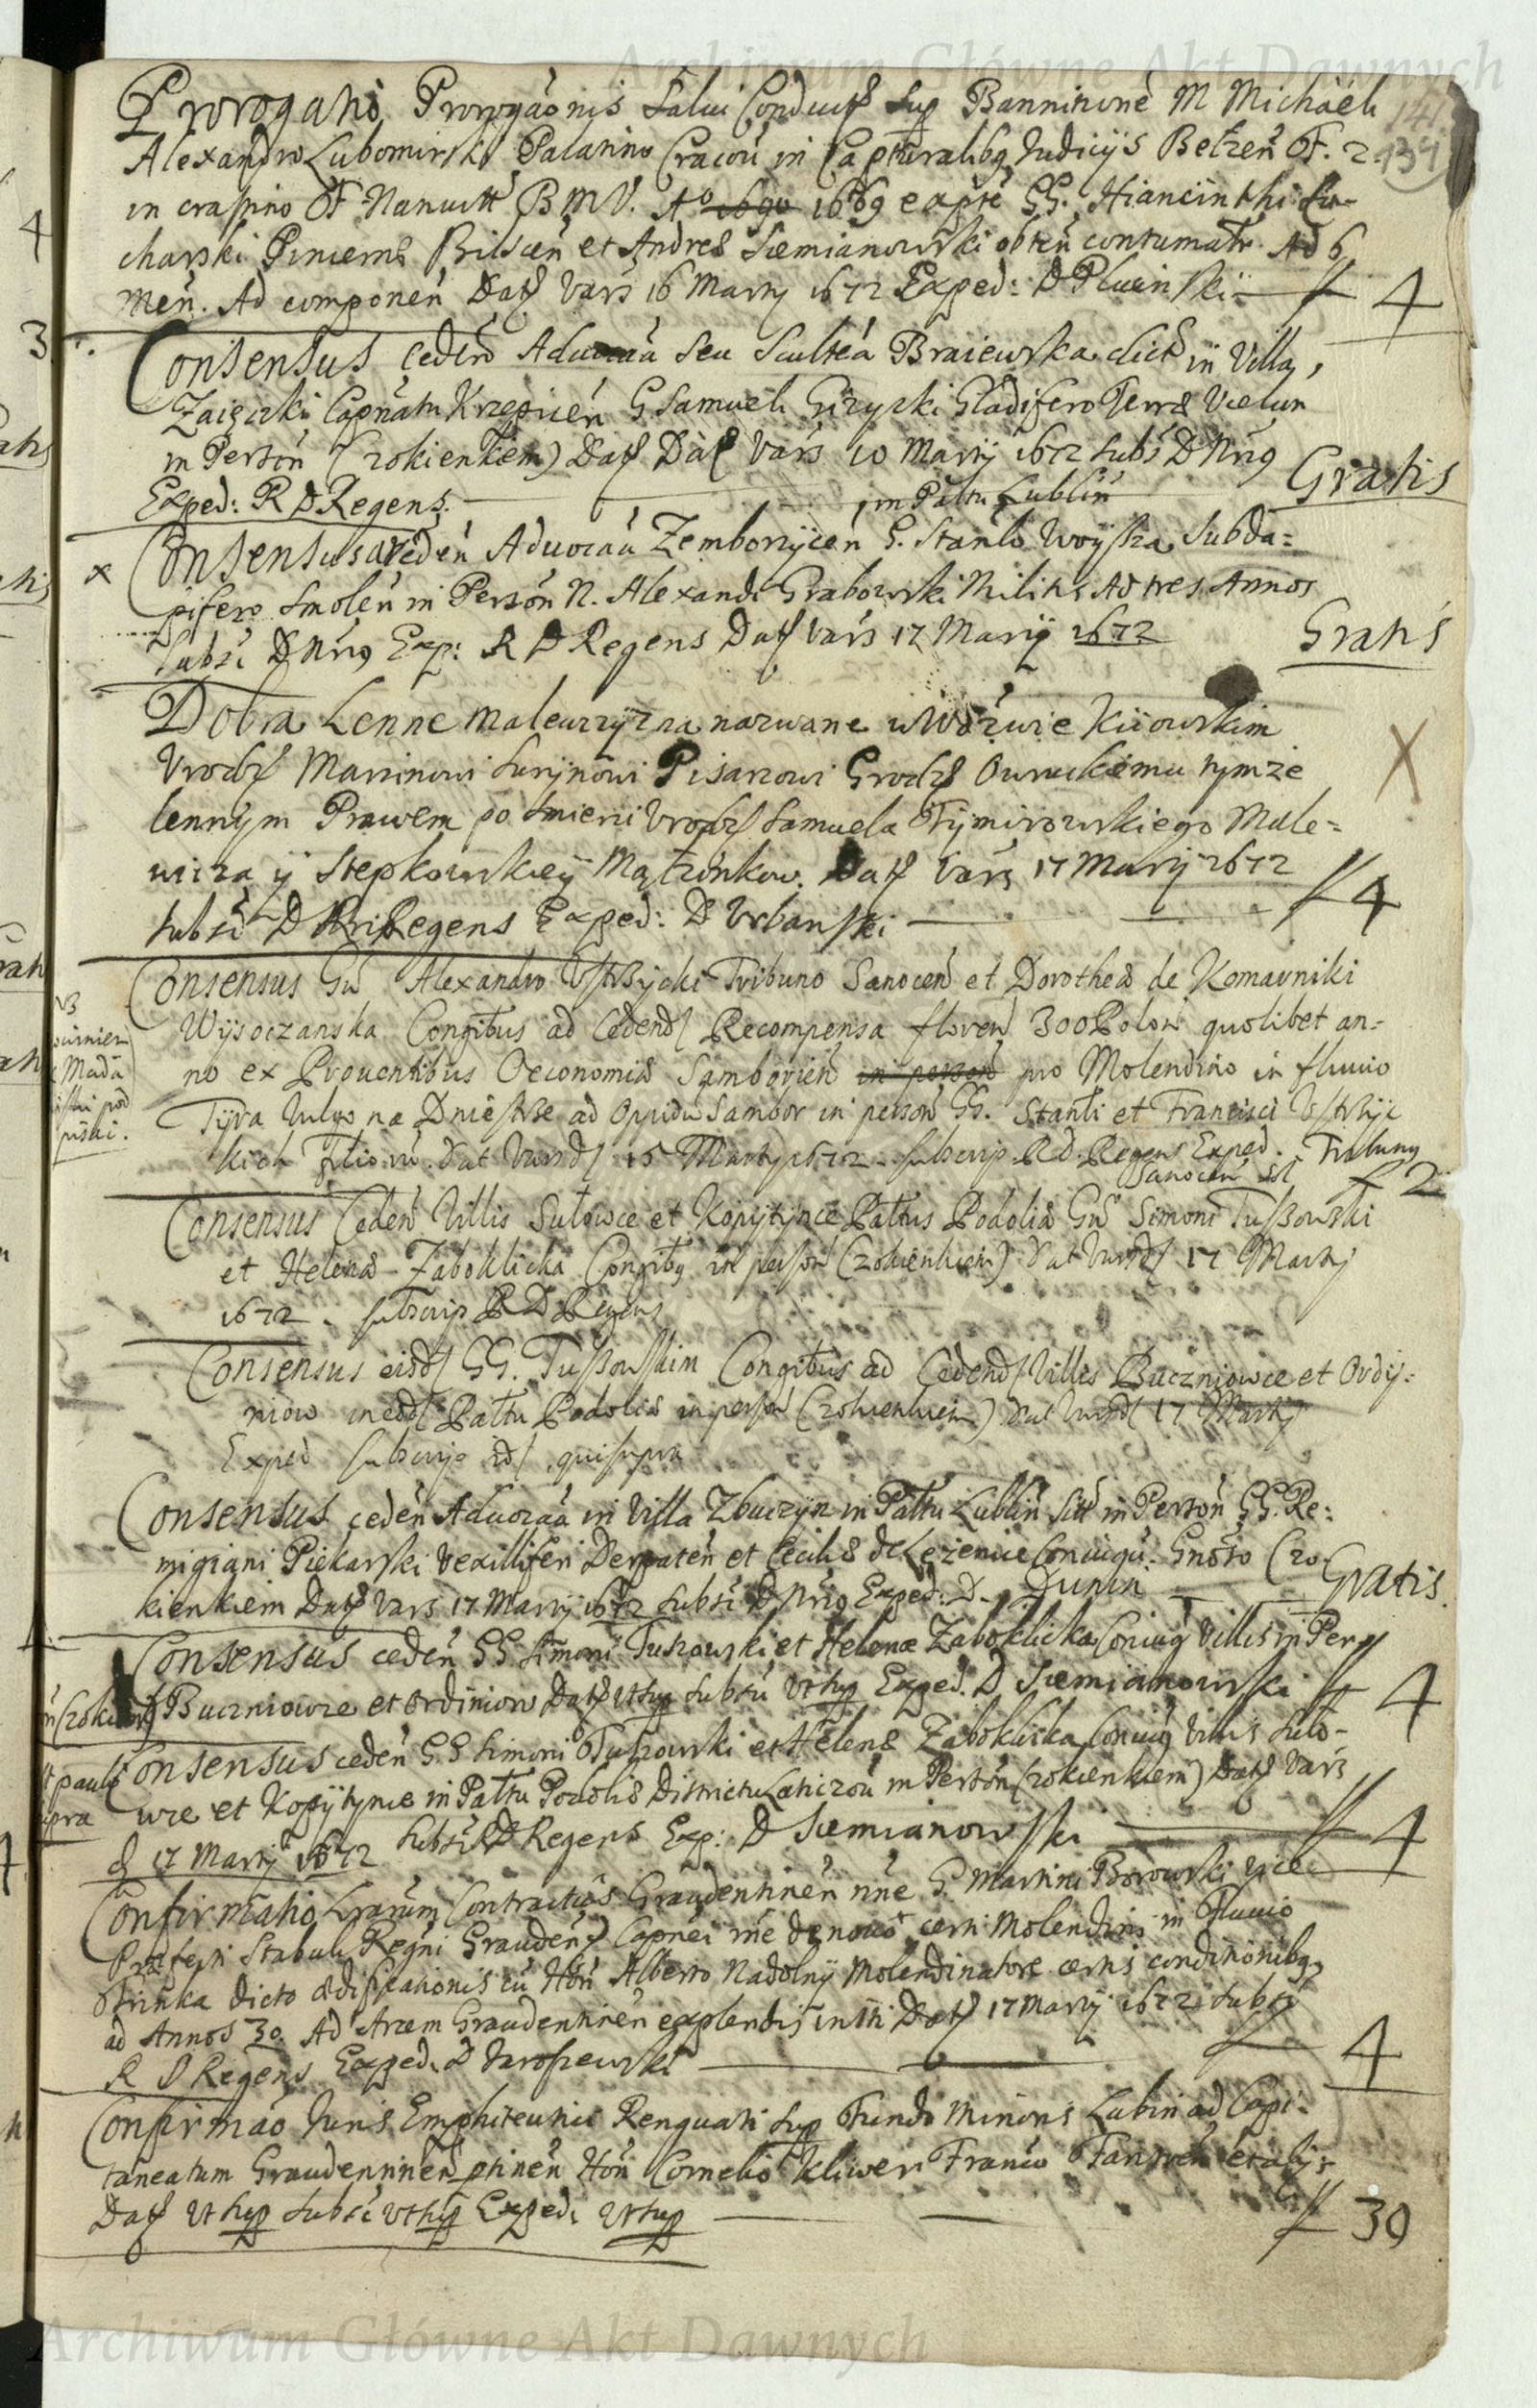 Archiwum Główne Akt Dawnych
141
139
Prorogatio Prorogãonis Salui Conduct9 sup Bannitione M Michaeli
Alexandro Lubomirski Palatino Cracou in Capturalibq Iudicijs Belzen F. 2.
in crastino F Nanuitt B M V. Aº 1690 1669 ex apte GG. Hiancinthi Su-
charski Pincerna Bilscen et Andrea Siemianowski obten contumatr. Ad 6
men. Ad componen Dat Vars 16 Martij 1672 Exped: D Pluinskij f 4
Consensus cedeñ Aduocaã seu Scultea Braiewska dict in Villa
Zaiączki Capñatu Krzepicen G Samueli Giżycki Gladifero Terræ Vielun
in Persoñ (zokienkem) Dat Dat Vars 10 Martij 1672 Subs D Nr9
Exped: R D Regens. Gratis
in Paltu Lublin
x Consensus ad cedeñ Aduocaã Zemborzijcen G. Stanlo Woyska Subda=
pifero Smolen in Persoñ N. Alexandri Grabowski Militis Ad tres Annos
Subs: D Nr9 Exp: R D Regens Dat Vars 17 Martij 1672 Gratis
Dobra Lenne Malewczyzna nazwane w Wdztwie Kijowskim X
Vrodz Marcinowi Surijnowi Pisarzowi Grodz Owruckiemu tymze
lennym Prawem po smierci Vrodz Samuela Tymirowskiego Male=
wicza y Stepkowskiey Małzonkow. Dat Vars 17 Martij 1672
Subsc D Nri Regens Exped: D Vrbanski f 4
Consensus Gñ Alexandro Ustrzycki Tribuno Sanocen et Dorothea de Komarniki
Wysoczanska Congibus ad Cedend Recompensa floren 300 Polon quolibet an-
no ex Prouentibus Oeconomiæ Samborien in person pro Molendino in fluuio
Tyra vulgo na Dniestrze ad Oppidu Sambor in person GG. Stanli et Francisci Ustrzyc
kich filioru. Dat Varsd 15 Martij 1672. subscrip R.D. Regens Exped. Tribuny
Sanocen f 2
Consensus Cedeñ Villis Sulowce et Kopijtynce Paltus Podoliæ Gñ Simoni Tuszowski
et Helena Zaboklicka Congibq in person (zokienkiem) Dat Varsd 17 Martij
1672. subscrip R D Regens
Consensus eisd GG. Tuszowskim Congibus ad Cedend Villis Buczniowce et Ordij-
niow in eod Paltu Podoliæ in person (zokienkiem) Dat Varsd 17 Martij
Exped subscrip id qui supra
Consensus cedeñ Aduocaã in Villa Zbuczyn in Paltu Lublin Sitt in Persoñ GG. Re=
migiani Piekarski Vexilliferi Derpaten et Cecilia de Lezenice Coniugũ. Gnoso (zo-
kienkiem Dat Vars 17 Martij 1672 Subsc D Nr9 Exped: D. Dunin Gratis.
Consensus cedeñ GG Simoni Tuszowski et Helenæ Zaboklicka Coniug Villis in Per
Buczniowce et Ordiniow Dat Vt sup Subsc Vt sup Exped. D Siemianowski f 4
Consensus cedeñ GG Simoni Tuszowski et Helena Zaboklicka Coniug Villis Sulo-
wce et Kopijtynce in Paltu Podoliæ Districtu Laticzou in Persoñ (zokienkiem) Dat Vars
d 17 Martij 1672 Subsc R D Regens Exp: D Siemianowski f 4
Confirmatio Lrarum Contractus Graudentinen rne G. Martini Borowski vice
Præfecti Stabuli Regni Graudens Capnei rne de nouo certi Molendini in Fluuio
Trinka dicto ædificationis cũ Hon Alberto Nadolny Molendinatore certis conditionibq
ad Annos 30. Ad Arcem Graudentinen explendis initi Dat 17 Martij 1672 Subsc
R D Regens Exped. D Jaroszewski f 4
Confirmaõ Iuris Emphiteutici Renguati sup Fundo Minoris Lubin ad Capi-
taneatum Graudentinen ptinen Hon Cornelio Kliwer Franco Fantzen et alijs
Dat Vt sup Subsc Vt sup Exped: Vt sup f 30
Archiwum Główne Akt Dawnych